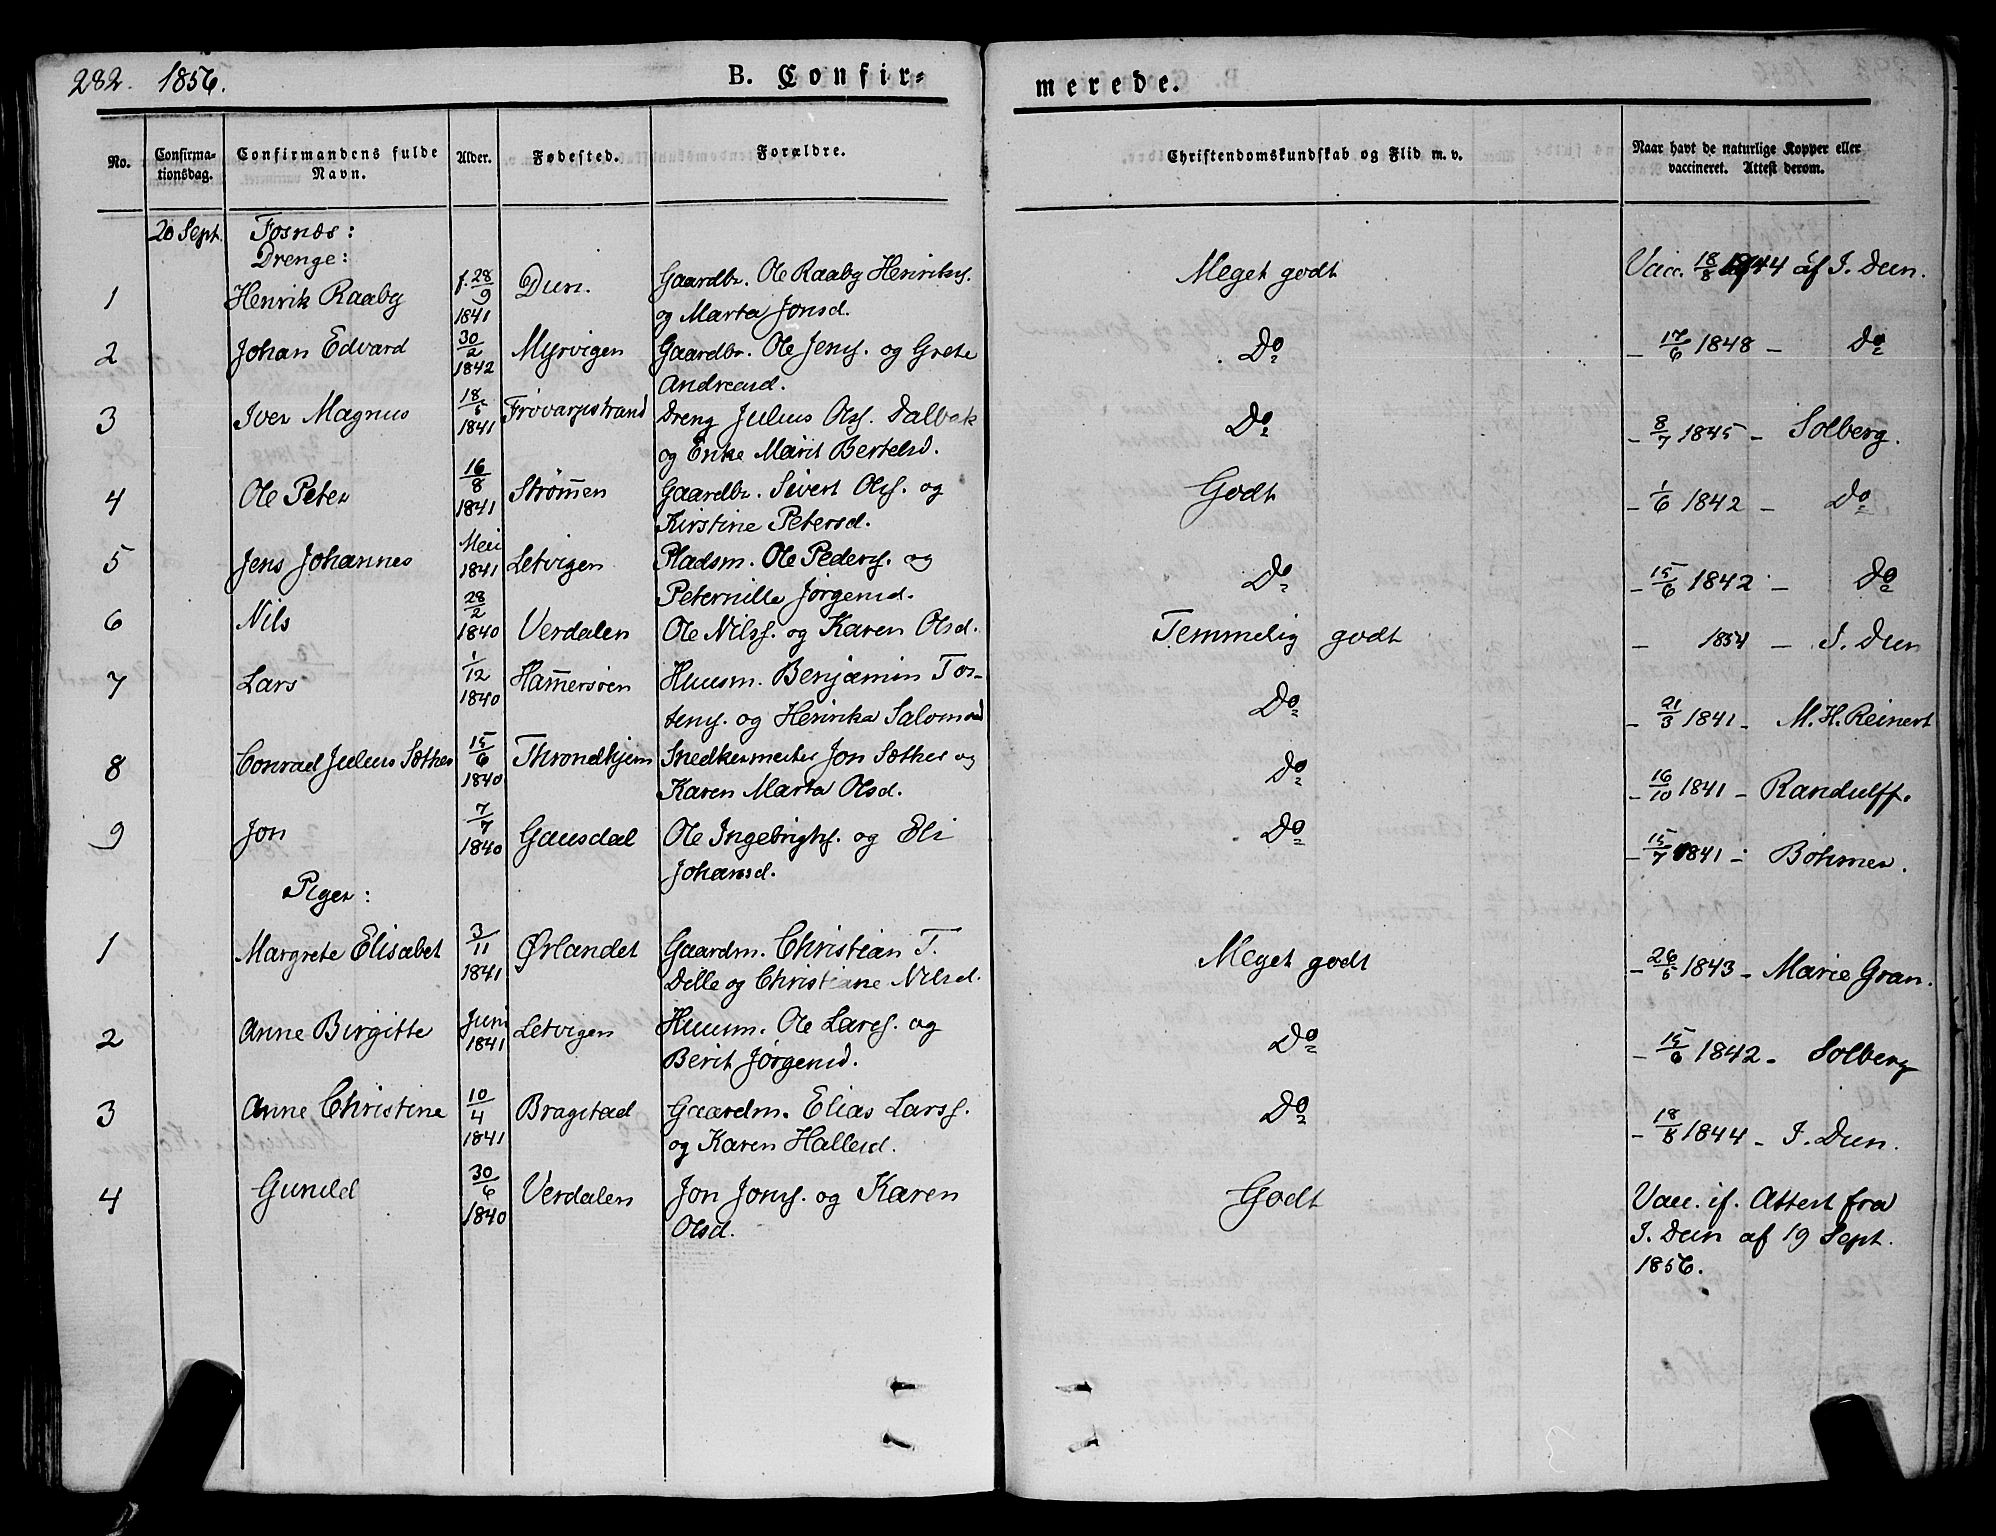 282. 1856.
B. Confir=
merede.
No.
Confirma-
tionsdag.
Confirmandens fulde
Navn.
Alder.
Fødested.
Forældre.
Christendomskundskab og Flid m. v.
Naar havt de naturlige Kopper eller
vaccineret. Attest derom.
20 Sept. Fosnæs:
Drenge:
1 Henrik Raaby f. 28/9 1841 Dun. Gaardbr. Ole Raaby Henriks. Meget godt Vacc. 18/8 1844 af I. Dun.
og Marta Jonsd.
2 Johan Edvard 30/2 1842 Myrvigen Gaardbr. Ole Jens. og Grete Do - 17/6 1848 - Do
Andreasd.
3 Iver Magnus 18/5 1841 Frøvarpstrand Dreng Julius Ols. Dalbek Do - 8/7 1845 - Solberg.
og Enke Marit Bertelsd.
4 Ole Peter 16/8 1841 Strømen Gaardbr. Sivert Ols. og Godt - 1/6 1842 - Do
Kirstine Petersd.
5 Jens Johannes Mei 1841 Letvigen Pladsm. Ole Peders. og Do - 15/6 1842 - Do
Peternille Jørgensd.
6 Nils 28/2 1840 Verdalen Ole Nils. og Karen Olsd. Temmelig godt - 1854 - I. Dun
7 Lars 1/12 1840 Hamersøen Huusm. Benjamin Tor- Do - 21/3 1841 - M. H. Reinert
stens. og Henrika Salomonsd
8 Conrad Julius Sæther 15/6 1840 Throndhjem Snedkermester Jon Sæther og Do - 16/10 1841 - Randulff.
Karen Marta Olsd.
9 Jon 7/7 1840 Gausdal Ole Ingebrights. og Eli Do - 15/7 1841 - Bøhmer.
Johansd.
Piger:
1 Margrete Elisabet 3/11 1841 Ørlandet Gaardm. Christian T. Meget godt - 26/5 1843 - Marie Gran.
Delle og Christiane Nilsd.
2 Anne Birgitte Juni 1841 Letvigen Huusm. Ole Lars. og Do - 15/6 1842 - Solberg
Berit Jørgensd.
3 Anne Christine 10/4 1841 Bragstad Gaardm. Elias Lars. Do - 18/8 1844 - I. Dun.
og Karen Hallesd.
4 Gunild 30/6 1840 Verdalen Jon Jons. og Karen Godt Vacc. if. Attest fra
Olsd. I. Dun af 19 Sept.
1856.